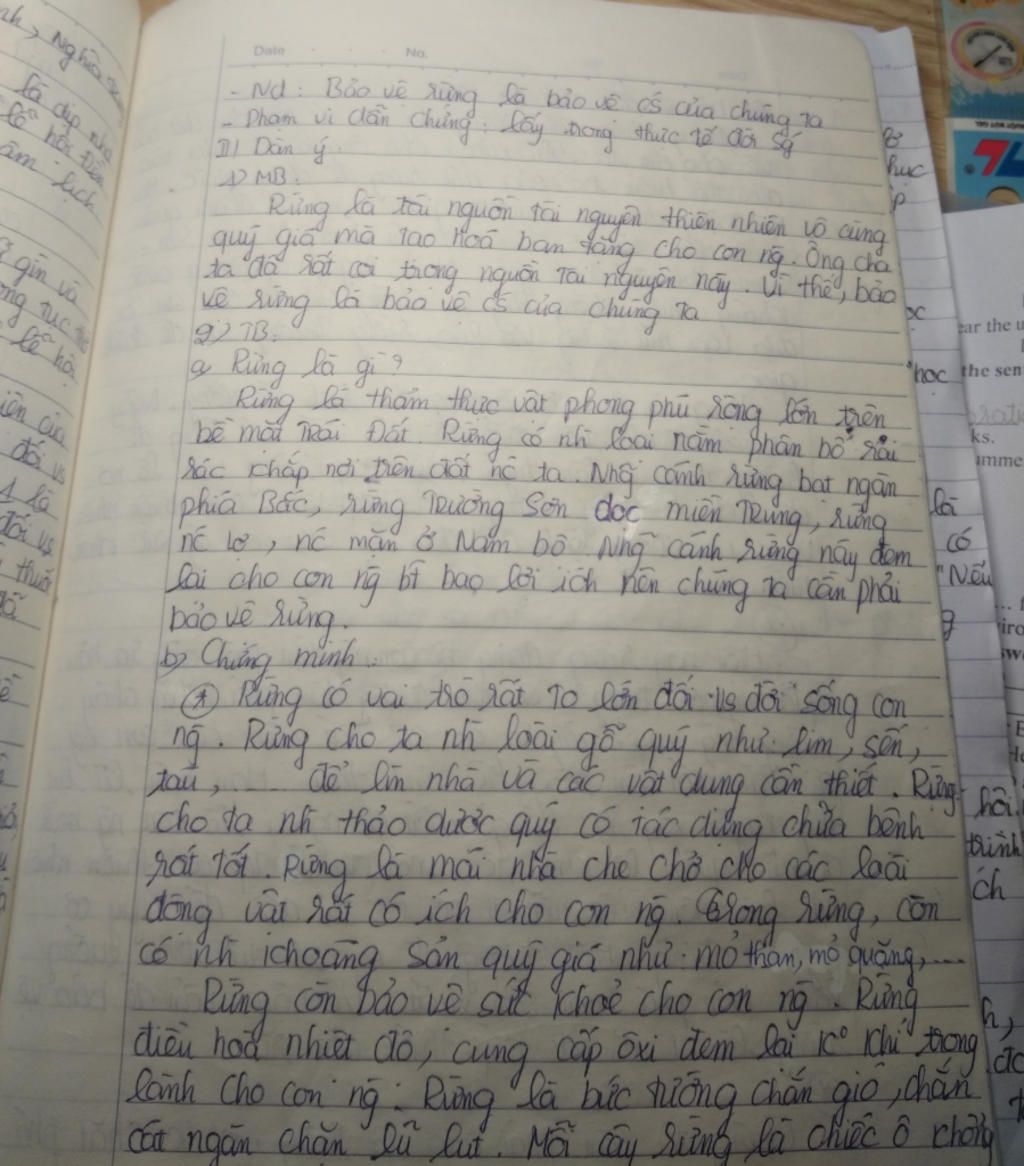 Date . . . No.
- Nd: Bảo vệ rừng là bảo vệ cs của chúng ta
- Phạm vi dẫn chứng: lấy trong thực tế đời sg
III) Dàn ý.
1) MB:
Rừng là tài nguồn tài nguyên thiên nhiên vô cùng
quý giá mà tạo hoá ban tặng cho con ng. Ông cha
ta đã rất coi trong nguồn tài nguyên này. Vì thế, bảo
vệ rừng là bảo vệ cs của chúng ta
2) TB:
a, Rừng là gì?
Rừng là thảm thực vật phong phú rộng lớn trên
bề mặt Trái Đất. Rừng có nh loại nằm phân bố rải
rác khắp nơi trên đất nc ta. Nhg cánh rừng bạt ngàn
phía Bắc, rừng Trường Sơn dọc miền Trung, rừng
nc lợ, nc mặn ở Nam bộ. Nhg cánh rừng này đem
lại cho con ng bt bao lợi ích nên chúng ta cần phải
bảo vệ rừng.
b) Chứng minh.
* Rừng có vai trò rất to lớn đối vs đời sống con
ng. Rừng cho ta nh loài gỗ quý như: lim, sến,
táu, ... để làm nhà và các vật dụng cần thiết. Rừng
cho ta nh thảo dược quý có tác dụng chữa bệnh
rất tốt. Rừng là mái nhà che chở cho các loài
động vật rất có ích cho con ng. Trong rừng, còn
có nh khoáng sản quý giá như: mỏ than, mỏ quặng,...
Rừng còn bảo vệ sức khoẻ cho con ng. Rừng
điều hoà nhiệt độ, cung cấp ôxi đem lại k° khí trong
lành cho con ng. Rừng là bức tường chắn gió, chắn
cát ngăn chặn lũ lụt. Mỗi cây rừng là chiếc ô chống